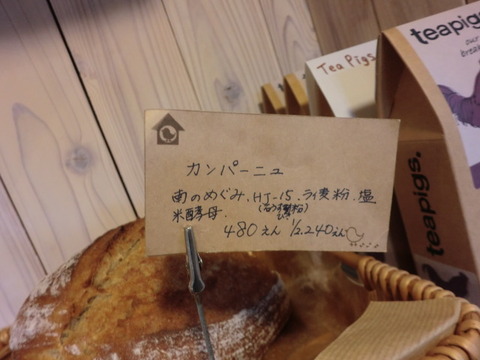 カンパーニュ
南のめぐみ.HJ-15.ライ麦粉.塩
米酵母.
480えん 1/2.240えん
Tea Pigs.
teapigs.
our
break
teapigs.